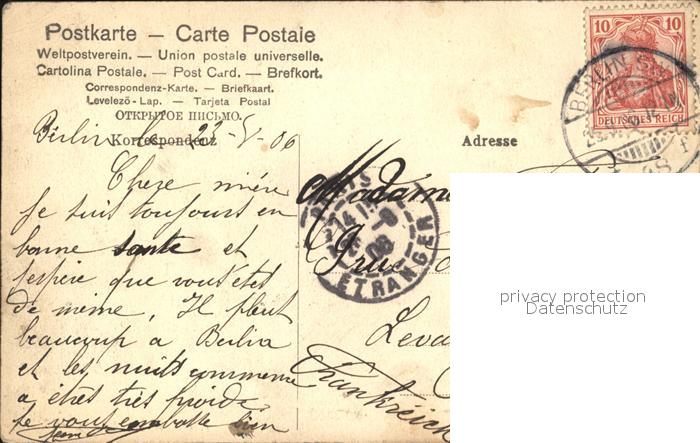 Postkarte — Carte Postale
Weltpostverein. — Union postale universelle.
Cartolina Postale. — Post Card. — Brefkort.
Correspondenz-Karte. — Briefkaart.
Levelező-Lap. — Tarjeta Postal
ОТКРЫТОЕ ПИСЬМО.
Korrespondenz
Adresse
10 10
DEUTSCHES REICH
BERLIN S.W.
Berlin le 23-5-06
Chere mère
Je suis toujours en
bonne sante et
j'espère que vous etes
de meme, Il pleut
beaucoup a Berlin
et les nuits comme
a êtes très froide
Je vous embrasse bien
Madame
PARIS
ETRANGER
06
Rue
Leva
Frankreich
privacy protection
Datenschutz